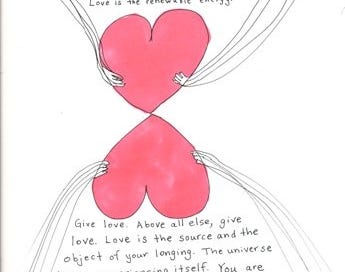 Love is the renewable energy.
Give love. Above all else, give
love. Love is the source and the
object of your longing. The universe
itself. You are